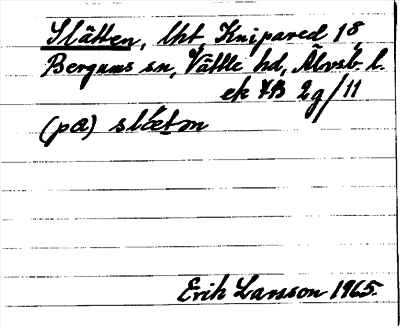 Slätten, lht, Knipared 1 8
Bergums sn, Vättle hd, Älvsb. l.
ek 7B 2g/11
(pa) slætn
Erik Larsson 1965.